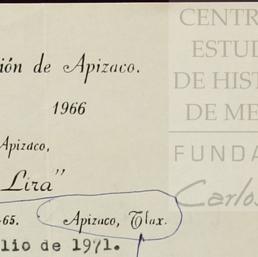 ión de Apizaco.
1966
Apizaco,
Lira"
65. Apizaco, Tlax.
lio de 1971.
CENTR
ESTUD
DE HIST
DE ME
FUNDA
Carlos